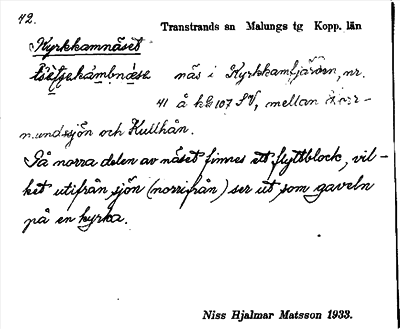 42.
Transtrands sn Malungs tg Kopp. län
Kyrkkamnäset
näs i Kyrkkamtjärnen, nr.
41 å kbl 107 SV, mellan
mundsjön och Kullhån.
På norra delen av näset finnes ett flyttblock, vil-
ket utifrån sjön (norrifrån) ser ut som gaveln
på en kyrka.
Niss Hjalmar Matsson 1933.